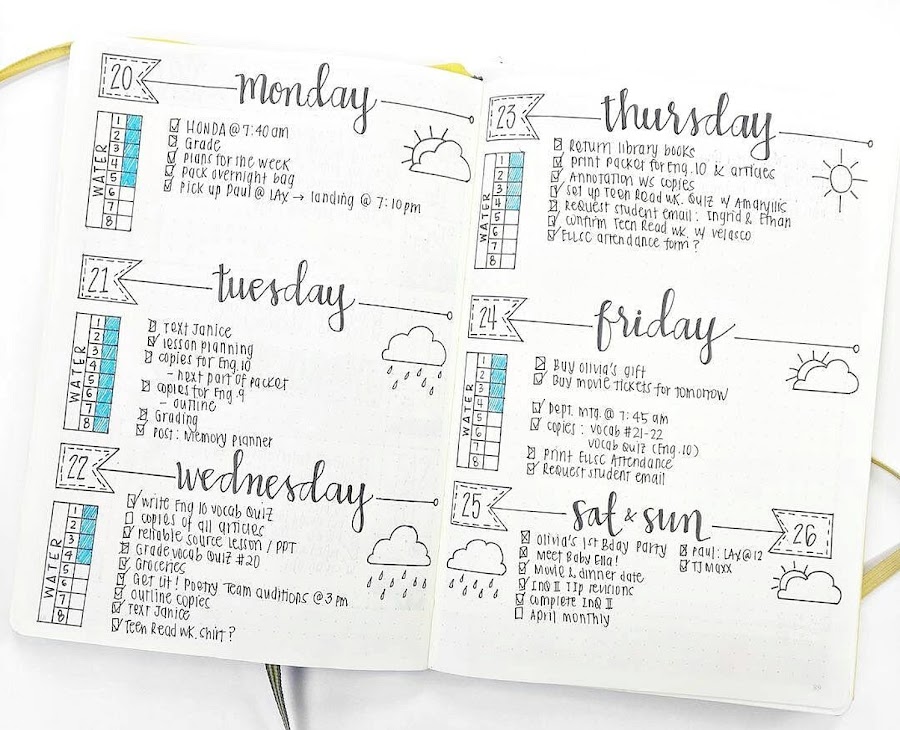 20
monday
WATER
1
2
3
4
5
6
7
8
HONDA @ 7:40 am
Grade
plans for the week
pack overnight bag
Pick up Paul @ LAX → landing @ 7:10pm
21
tuesday
WATER
1
2
3
4
5
6
7
8
Text Janice
lesson planning
copies for Eng.10
- next part of packet
copies for Eng.9
- outline
Grading
Post: Memory planner
22
wednesday
WATER
1
2
3
4
5
6
7
8
write Eng 10 vocab Quiz
copies of all articles
reliable source lesson / PPT
Grade vocab Quiz #20
Groceries
Get Lit! Poetry Team auditions @ 3pm
outline copies
Text Janice
Teen Read WK. Shirt?
23
thursday
WATER
1
2
3
4
5
6
7
8
Return library books
Print Packet for Eng.10 & articles
Annotation WS copies
Set up Teen Read WK. Quiz w/ Amaryllis
Request student email: Ingrid & Ethan
Confirm Teen Read WK. w/ Velasco
ELLSC attendance form?
24
friday
WATER
1
2
3
4
5
6
7
8
Buy Olivia's gift
Buy movie tickets for tomorrow
Dept. Mtg. @ 7:45 am
copies: vocab #21-22
vocab Quiz (Eng.10)
Print ELLSC Attendance
Request student email
25
sat & sun
26
Olivia's 1st Bday Party
Meet Baby Ella!
Movie & dinner date
InQ II TIP revisions
Complete InQ II
April monthly
Paul: LAX @ 12
TJ Maxx